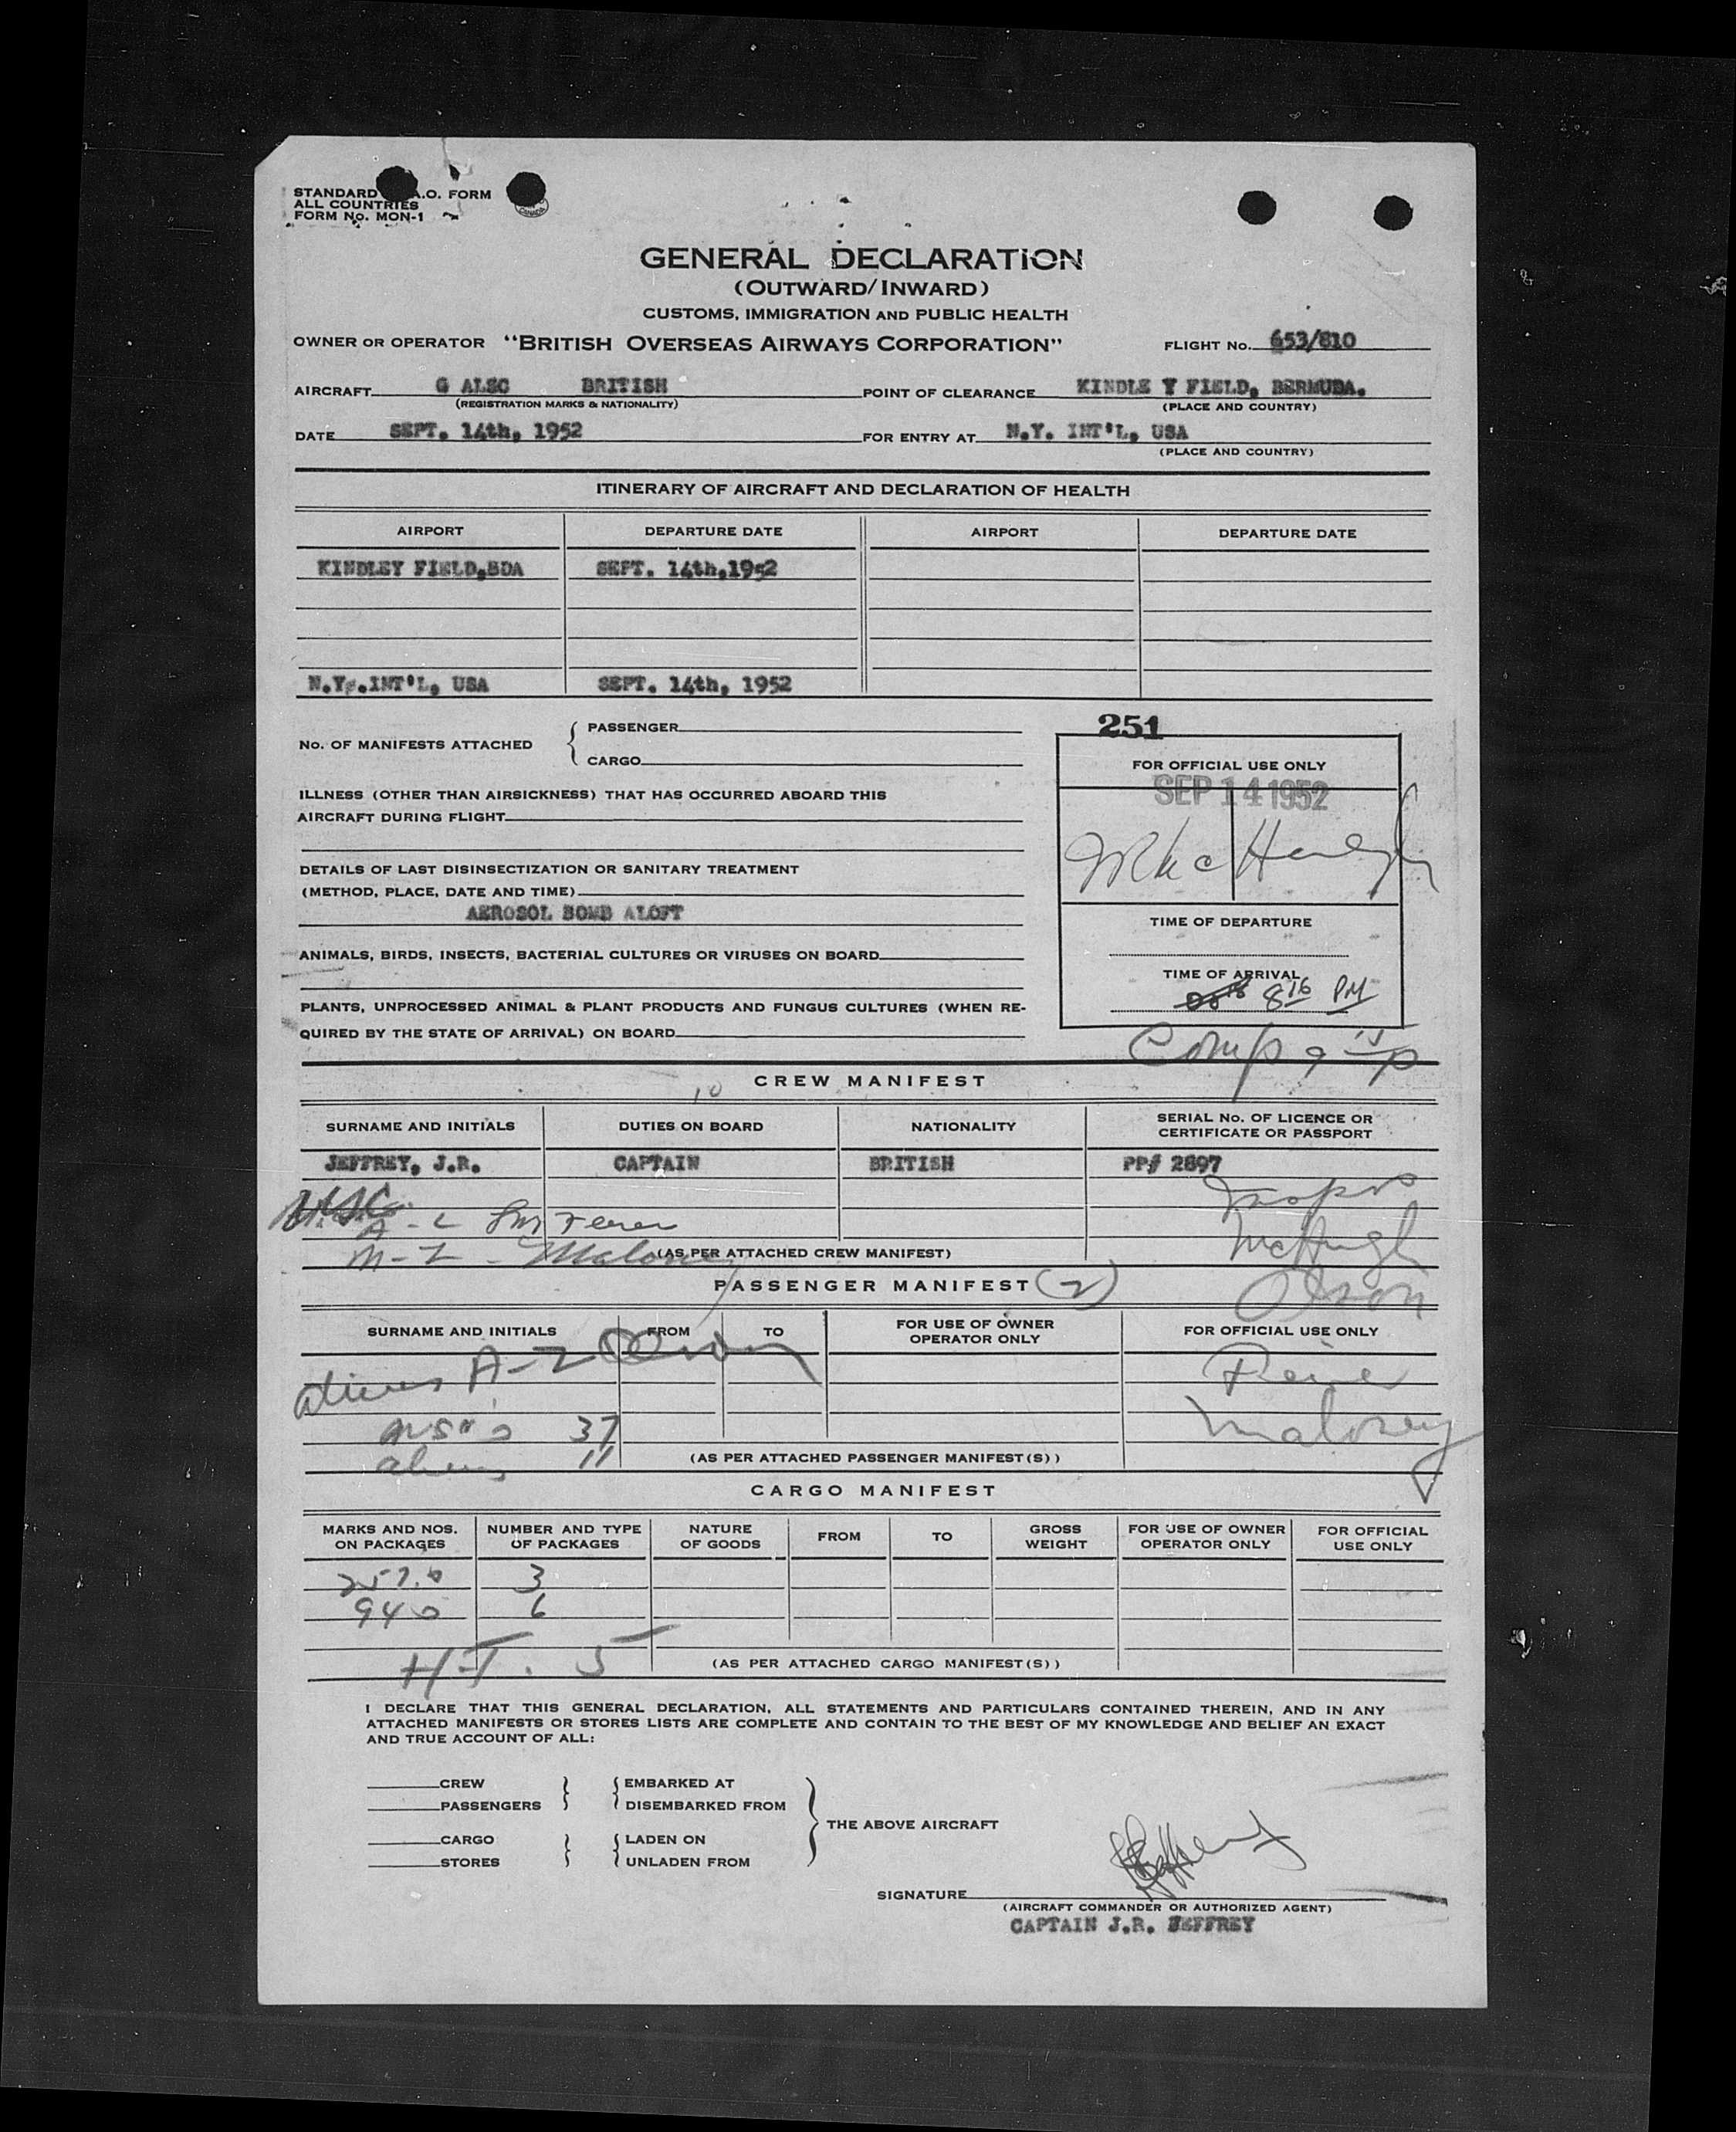 STANDARD A.O. FORM
ALL COUNTRIES
FORM No. MON-1
GENERAL DECLARATION
(OUTWARD/INWARD)
CUSTOMS, IMMIGRATION AND PUBLIC HEALTH
OWNER OR OPERATOR "BRITISH OVERSEAS AIRWAYS CORPORATION" FLIGHT No. 653/810
AIRCRAFT G ALSC BRITISH POINT OF CLEARANCE KINDLE Y FIELD, BERMUDA.
(REGISTRATION MARKS & NATIONALITY) (PLACE AND COUNTRY)
DATE SEPT. 14th, 1952 FOR ENTRY AT N.Y. INT'L, USA
(PLACE AND COUNTRY)
ITINERARY OF AIRCRAFT AND DECLARATION OF HEALTH
AIRPORT DEPARTURE DATE AIRPORT DEPARTURE DATE
KINDLEY FIELD,BDA SEPT. 14th,1952
N.Y..INT'L, USA SEPT. 14th, 1952
No. OF MANIFESTS ATTACHED
PASSENGER
CARGO
ILLNESS (OTHER THAN AIRSICKNESS) THAT HAS OCCURRED ABOARD THIS
AIRCRAFT DURING FLIGHT
DETAILS OF LAST DISINSECTIZATION OR SANITARY TREATMENT
(METHOD, PLACE, DATE AND TIME)
AEROSOL BOMB ALOFT
ANIMALS, BIRDS, INSECTS, BACTERIAL CULTURES OR VIRUSES ON BOARD
PLANTS, UNPROCESSED ANIMAL & PLANT PRODUCTS AND FUNGUS CULTURES (WHEN RE-
QUIRED BY THE STATE OF ARRIVAL) ON BOARD
251
FOR OFFICIAL USE ONLY
SEP 14 1952
TIME OF DEPARTURE
TIME OF ARRIVAL
8 16 PM
Comp 9
CREW MANIFEST
10
SURNAME AND INITIALS DUTIES ON BOARD NATIONALITY SERIAL No. OF LICENCE OR
CERTIFICATE OR PASSPORT
JEFFREY, J.R. CAPTAIN BRITISH PP# 2897
McHugh
M-2 - Maloney (AS PER ATTACHED CREW MANIFEST)
Olson
PASSENGER MANIFEST (2)
SURNAME AND INITIALS FROM TO FOR USE OF OWNER
OPERATOR ONLY FOR OFFICIAL USE ONLY
A-2 Olson
Maloney
37
aliens 11 (AS PER ATTACHED PASSENGER MANIFEST(S))
CARGO MANIFEST
MARKS AND NOS.
ON PACKAGES NUMBER AND TYPE
OF PACKAGES NATURE
OF GOODS FROM TO GROSS
WEIGHT FOR USE OF OWNER
OPERATOR ONLY FOR OFFICIAL
USE ONLY
3
940 6
5 (AS PER ATTACHED CARGO MANIFEST(S))
I DECLARE THAT THIS GENERAL DECLARATION, ALL STATEMENTS AND PARTICULARS CONTAINED THEREIN, AND IN ANY
ATTACHED MANIFESTS OR STORES LISTS ARE COMPLETE AND CONTAIN TO THE BEST OF MY KNOWLEDGE AND BELIEF AN EXACT
AND TRUE ACCOUNT OF ALL:
CREW EMBARKED AT
PASSENGERS DISEMBARKED FROM
THE ABOVE AIRCRAFT
CARGO LADEN ON
STORES UNLADEN FROM
SIGNATURE
(AIRCRAFT COMMANDER OR AUTHORIZED AGENT)
CAPTAIN J.R. JEFFREY